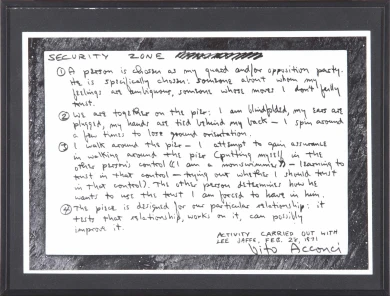 SECURITY ZONE
① A person is chosen as my guard and/or opposition party.
He is specifically chosen: someone about whom my
feelings are ambiguous, someone whose moves I don't fully
trust.
② We are together on the pier: I am blindfolded, my ears are
plugged, my hands are tied behind my back – I spin around
a few times to lose ground orientation.
③ I walk around the pier – I attempt to gain assurance
in walking around the pier (putting myself in the
other person's control (I am a – learning to
trust in that control – trying out whether I should trust
in that control). The other person determines how he
wants to use the trust I am forced to have in him.
④ The piece is designed for our particular relationship: it
tests that relationship, works on it, can possibly
improve it.
ACTIVITY CARRIED OUT WITH
LEE JAFFE, FEB. 28, 1971
Vito Acconci